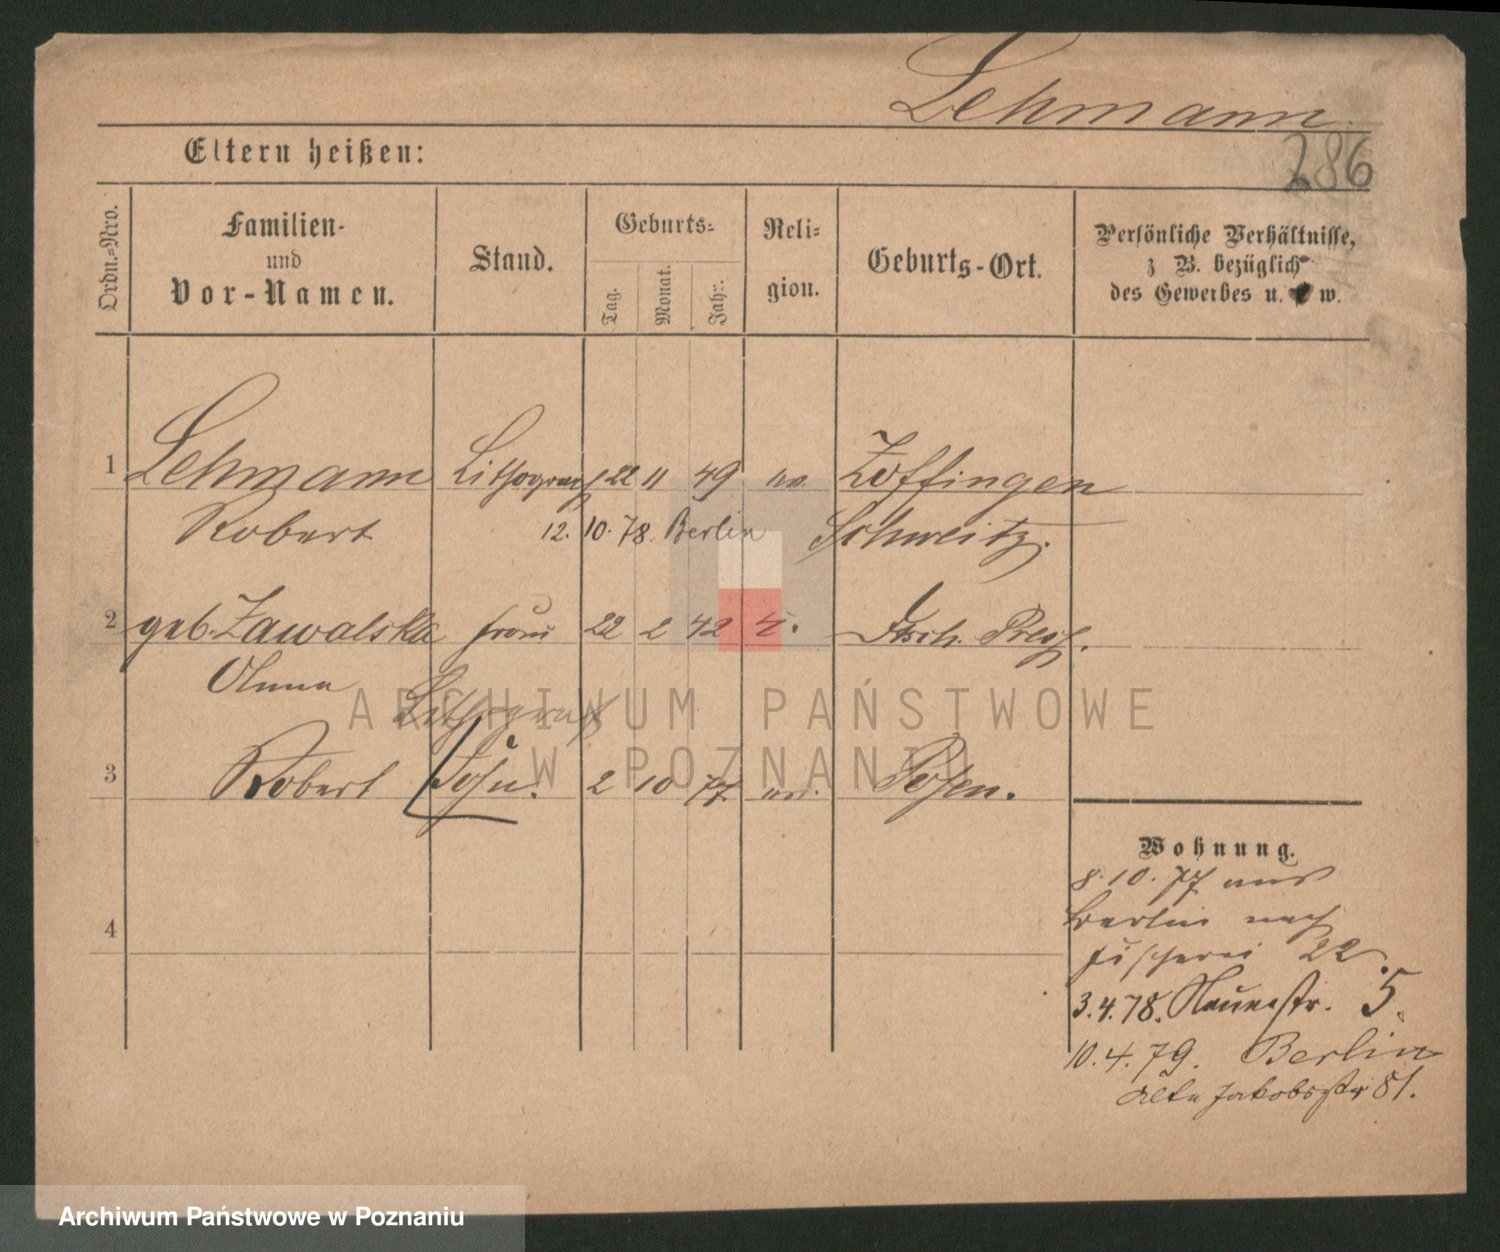 Lehmann
286
Eltern heißen:
Ordn.-Nro.
Familien-
und
Vor-Namen.
Stand.
Geburts-
Tag.
Monat.
Jahr.
Reli-
gion.
Geburts-Ort.
Persönliche Verhältnisse,
z. B. bezüglich
des Gewerbes u. w.
1 Lehmann Lithograph 22 11 49 Zoffingen
Robert 12. 10. 78. Berlin Schweitz.
2 geb. Zawalska Frau 22 2 42 k.
Lithograph
3 Robert Sohn. 2 10 77 Posen.
4
Wohnung.
8. 10. 77 aus
Berlin nach
Fischerei 22.
3. 4. 78. 5.
10. 4. 79. Berlin
Alte Jakobsstr 81.
ARCHIWUM PAŃSTWOWE
W POZNANIU
Archiwum Państwowe w Poznaniu